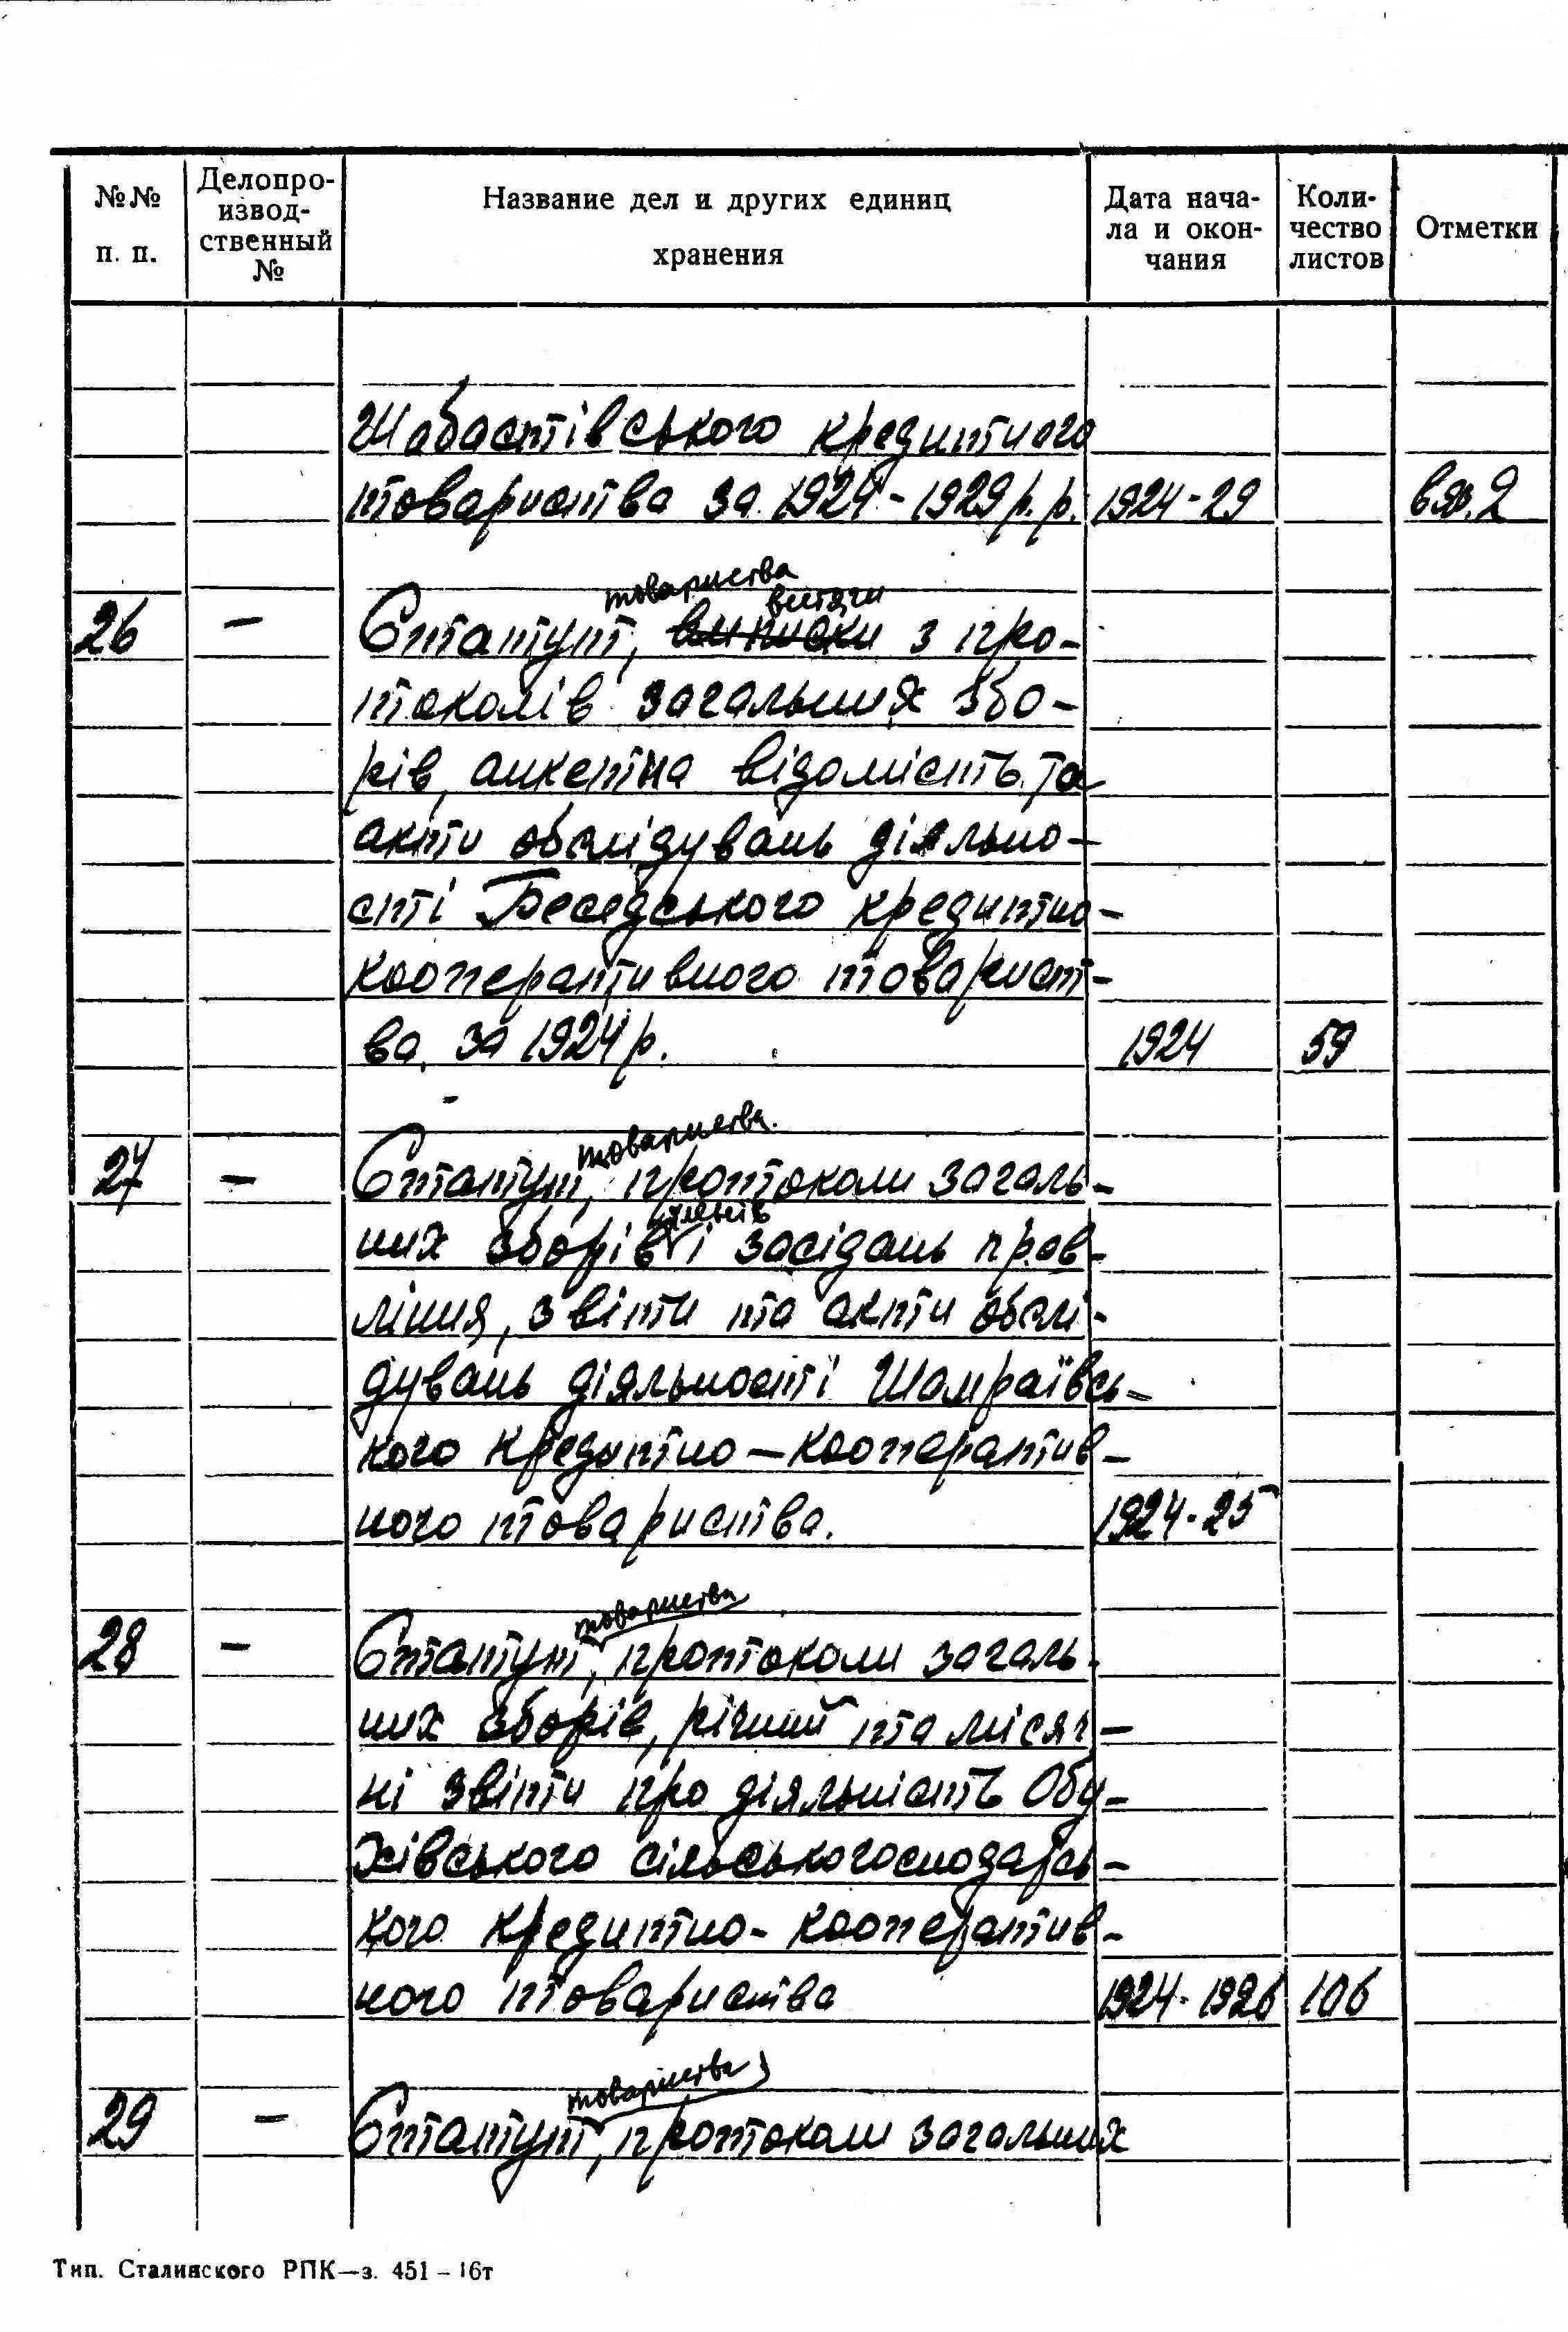 №№ п. п.
Делопро-
извод-
ственный
№
Название дел и других единиц
хранения
Дата нача-
ла и окон-
чания
Коли-
чество
листов
Отметки
Шабастівського кредитного
товариства за 1924-1929 р.р. 1924-29 вяз. 2
товариства
витяги
26 - Статут, виписки з про-
токолів загальних збо-
рів, анкетна відомість та
акти обслідувань діяльно-
сті Беседського кредитно-
кооперативного товарист-
ва, за 1924 р. 1924 59
товариства
27 - Статут, протоколи загаль-
членів
них зборів і засідань прав-
ліния, звіти та акти обслі-
дувань діяльності Шамраївсь-
кого кредитно-кооператив-
ного товариства. 1924-25
товариства
28 - Статут, протоколи загаль-
них зборів, річний та місяч-
ні звіти про діяльність Обу-
хівського сільськогосподарсь-
кого кредитно-кооператив-
ного товариства 1924-1926 106
товариства,
29 - Статут, протоколи загальних
Тип. Сталинского РПК—з. 451-16т